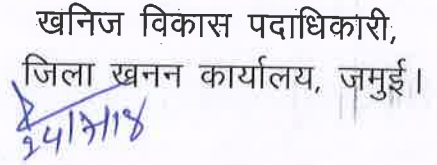 खनिज विकास पदाधिकारी,
जिला खनन कार्यालय, जमुई।